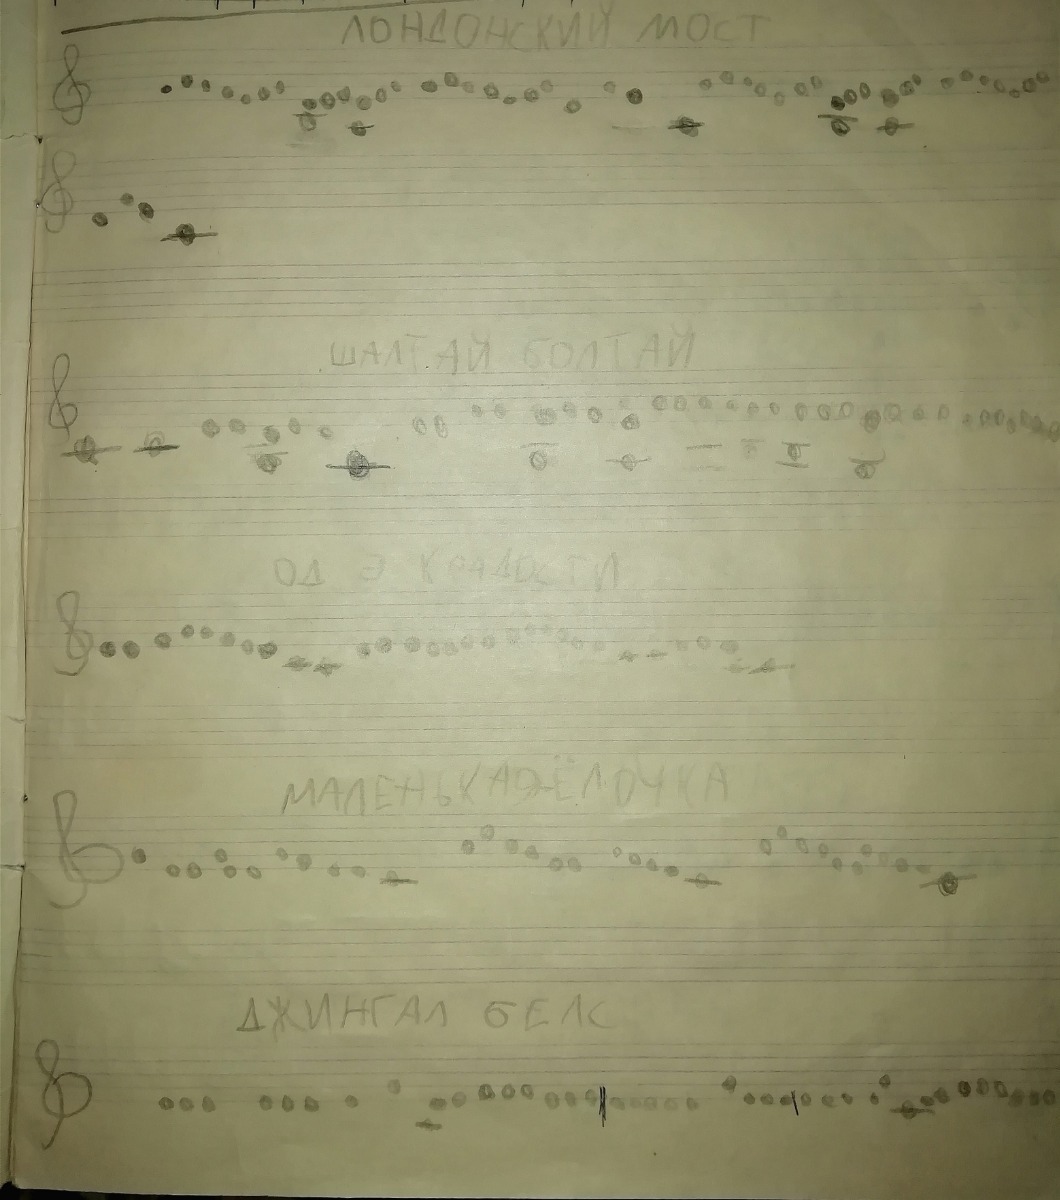 ЛОНДОНСКИЙ МОСТ
ШАЛТАЙ БОЛТАЙ
ОД Э К РАДОСТИ
МАЛЕНЬКАЯ ЁЛОЧКА
ДЖИНГАЛ БЕЛС